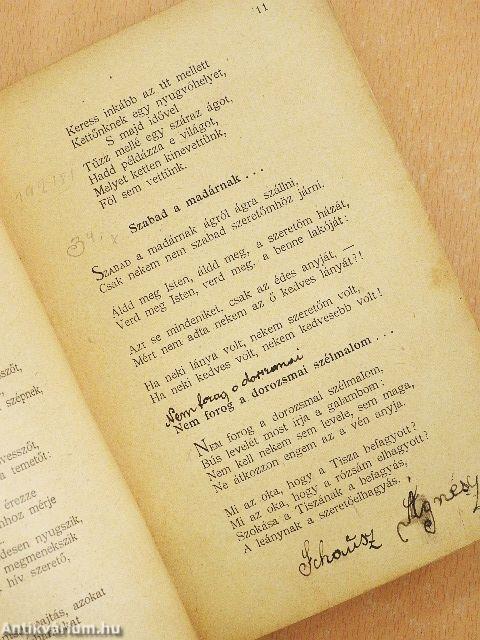 11
Keress inkább az út mellett
Kettőnknek egy nyugvóhelyet,
S majd idővel
Tűzz mellé egy száraz ágot,
Hadd példázza e világot,
Melyet ketten kinevettünk,
Föl sem vettünk.
Szabad a madárnak . . .
SZABAD a madárnak ágról ágra szállni,
Csak nekem nem szabad szeretőmhöz járni.
Áldd meg Isten, áldd meg, a szeretőm házát,
Verd meg Isten, verd meg, a benne lakóját:
Azt se mindeniket, csak az édes anyját, —
Mért nem adta nekem az ő kedves lányát?!
Ha neki lánya volt, nekem szeretőm volt,
Ha neki kedves volt, nekem kedvesebb volt!
Nem forog a dorozsmai
Nem forog a dorozsmai szélmalom . . .
NEM forog a dorozsmai szélmalom,
Bús levelét most írja a galambom:
Nem kell nekem sem levele, sem maga,
Ne átkozzon engem az a vén anyja.
Mi az oka, hogy a Tisza befagyott?
Mi az oka, hogy a rózsám elhagyott?
Szokása a Tiszának a befagyás,
A leánynak a szeretőelhagyás.
Schausz Ágnes
szépnek,
vesszőt,
a temetőt:
érezze
mérje
nyugszik,
megmenekszik
hív szerető,
azokat
Antikvarium.hu